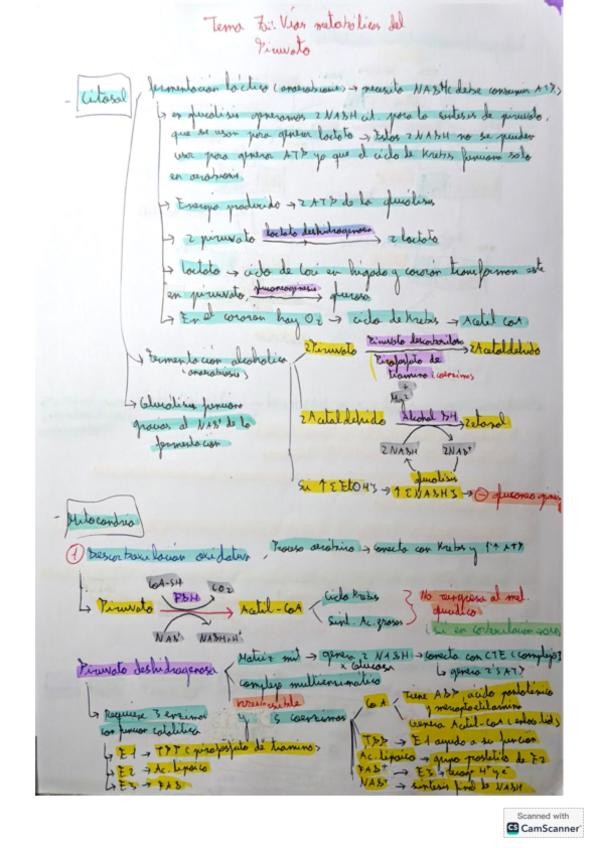 Tema 7: Vías metabólicas del
Piruvato
- Citosol
fermentación láctica (anaerobiosis) → necesita NADH (debe consumir ATP)
↳ en glucólisis generamos 2 NADH cit. para la síntesis de piruvato,
que se usan para generar lactato → Estos 2 NADH no se pueden
usar para generar ATP ya que el ciclo de Krebs funciona solo
en aerobiosis
↳ Energía producida → 2 ATP de la glucólisis
↳ 2 piruvato lactato deshidrogenasa → 2 lactato
↳ lactato → ciclo de Cori en hígado y corazón transforman este
en piruvato, gluconeogénesis → glucosa
↳ En el corazón hay O2 → ciclo de Krebs → Acetil CoA
↳ Fermentación alcohólica
(anaerobiosis)
2 Piruvato Piruvato descarboxilasa → 2 Acetaldehído
Pirofosfato de
tiamina (coenzima
+
Mg2+
2 Acetaldehído Alcohol DH → 2 etanol
2 NADH 2 NAD+
glucólisis
↳ Glucólisis funciona
gracias al NAD+ de la
fermentación
Si ↑[EtOH] → ↑[NADH] → ⊖ gluconeogénesis
- Mitocondria
① Descarboxilación oxidativa, Proceso aeróbico → conecta con Krebs y ↑↑ ATP
↳ Piruvato → Acetil-CoA
CoA-SH CO2
PDH
NAD+ NADH+H+
Ciclo Krebs
Sínt. Ac. grasos
No regresa al met.
glucídico
Piruvato deshidrogenasa
Matriz mit → genera 2 NADH → conecta con CTE (complejo I
x glucosa
↳ genera 2'5 ATP
complejo multienzimático
irreversible
↳ Requiere 3 enzimas
con función catalítica
5 coenzimas
↳ E1 → TPP (pirofosfato de tiamina)
↳ E2 → Ac. lipoico
↳ E3 → FAD
CoA
Tiene ADP, ácido pantoténico
y mercaptoetilamina
Genera Acetil-CoA
TPP → E1 ayuda a su función
Ac. lipoico → grupo prostético de E2
FAD+ → E3 →
NAD+ → síntesis final de NADH
Scanned with
CS CamScanner